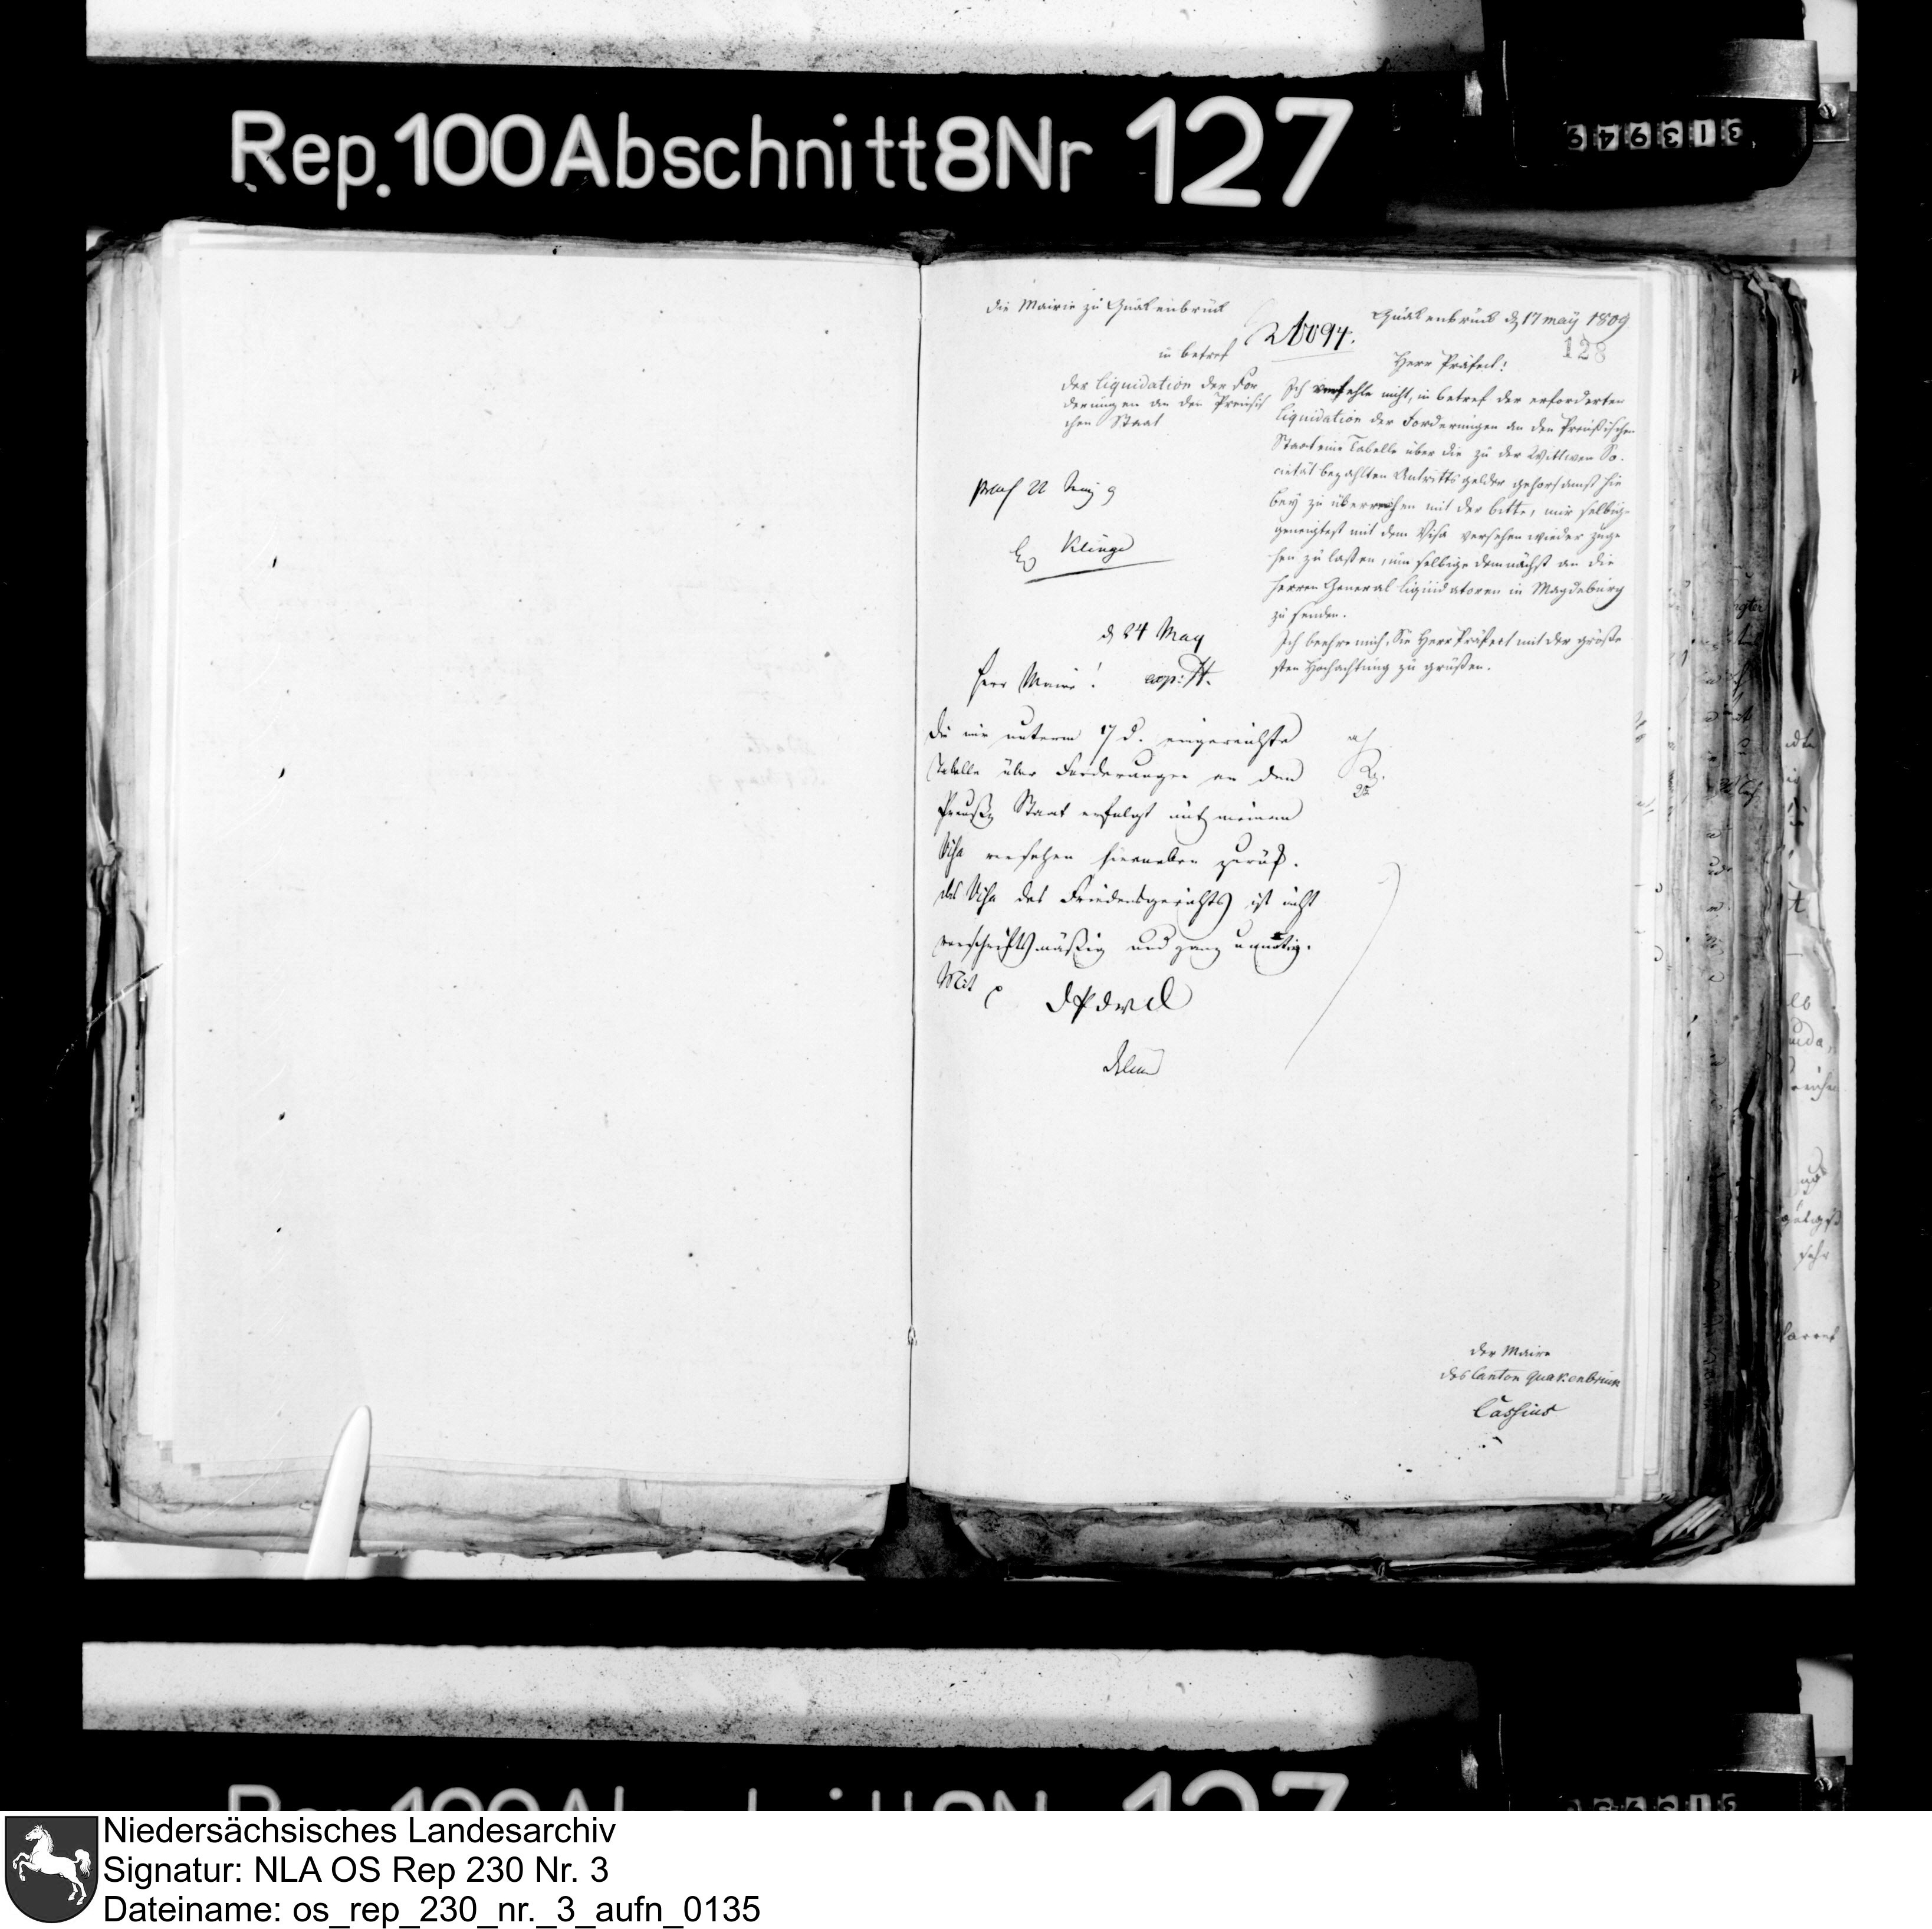 Rep. 100 Abschnitt 8 Nr 127
313949
die Mairie zu Quakenbrück
in betref
der Liquidation der For
derungen an den Preusis
chen Staat
Quakenbrück d 17 may 1809
128
Herr Präfect!
Ich verfehle nicht, in betref der erforderten
Liquidation der Forderungen an den Preußischen
Staat eine Tabelle über die zu der Wittwen So-
cietät bezahlten Antritts gelder gehorsamst hie
bey zu überreichen mit der bitte, mir selbige
geneigtest mit dem Visa versehen wieder zuge
hen zu laßen, um selbige demnächst an die
Herren General liquidatoren in Magdeburg
zu senden.
Ich beehre mich, Sie Herr Präfect mit der größe
sten Hochachtung zu grüßen.
der Maire
des Canton Quakenbrück
Cassius
praes 22
Klinge
d 24 May
Herr Maire!
Die mir unterm 17 d. eingereichte
Tabelle über Forderungen an den
Preußn Staat erfolgt mit meinem
Visa versehen hierneben zurück.
das Visa des Friedensgerichts ist nicht
vorschriftsmäßig und ganz unnötig.
Mit
Niedersächsisches Landesarchiv
Signatur: NLA OS Rep 230 Nr. 3
Dateiname: os_rep_230_nr._3_aufn_0135